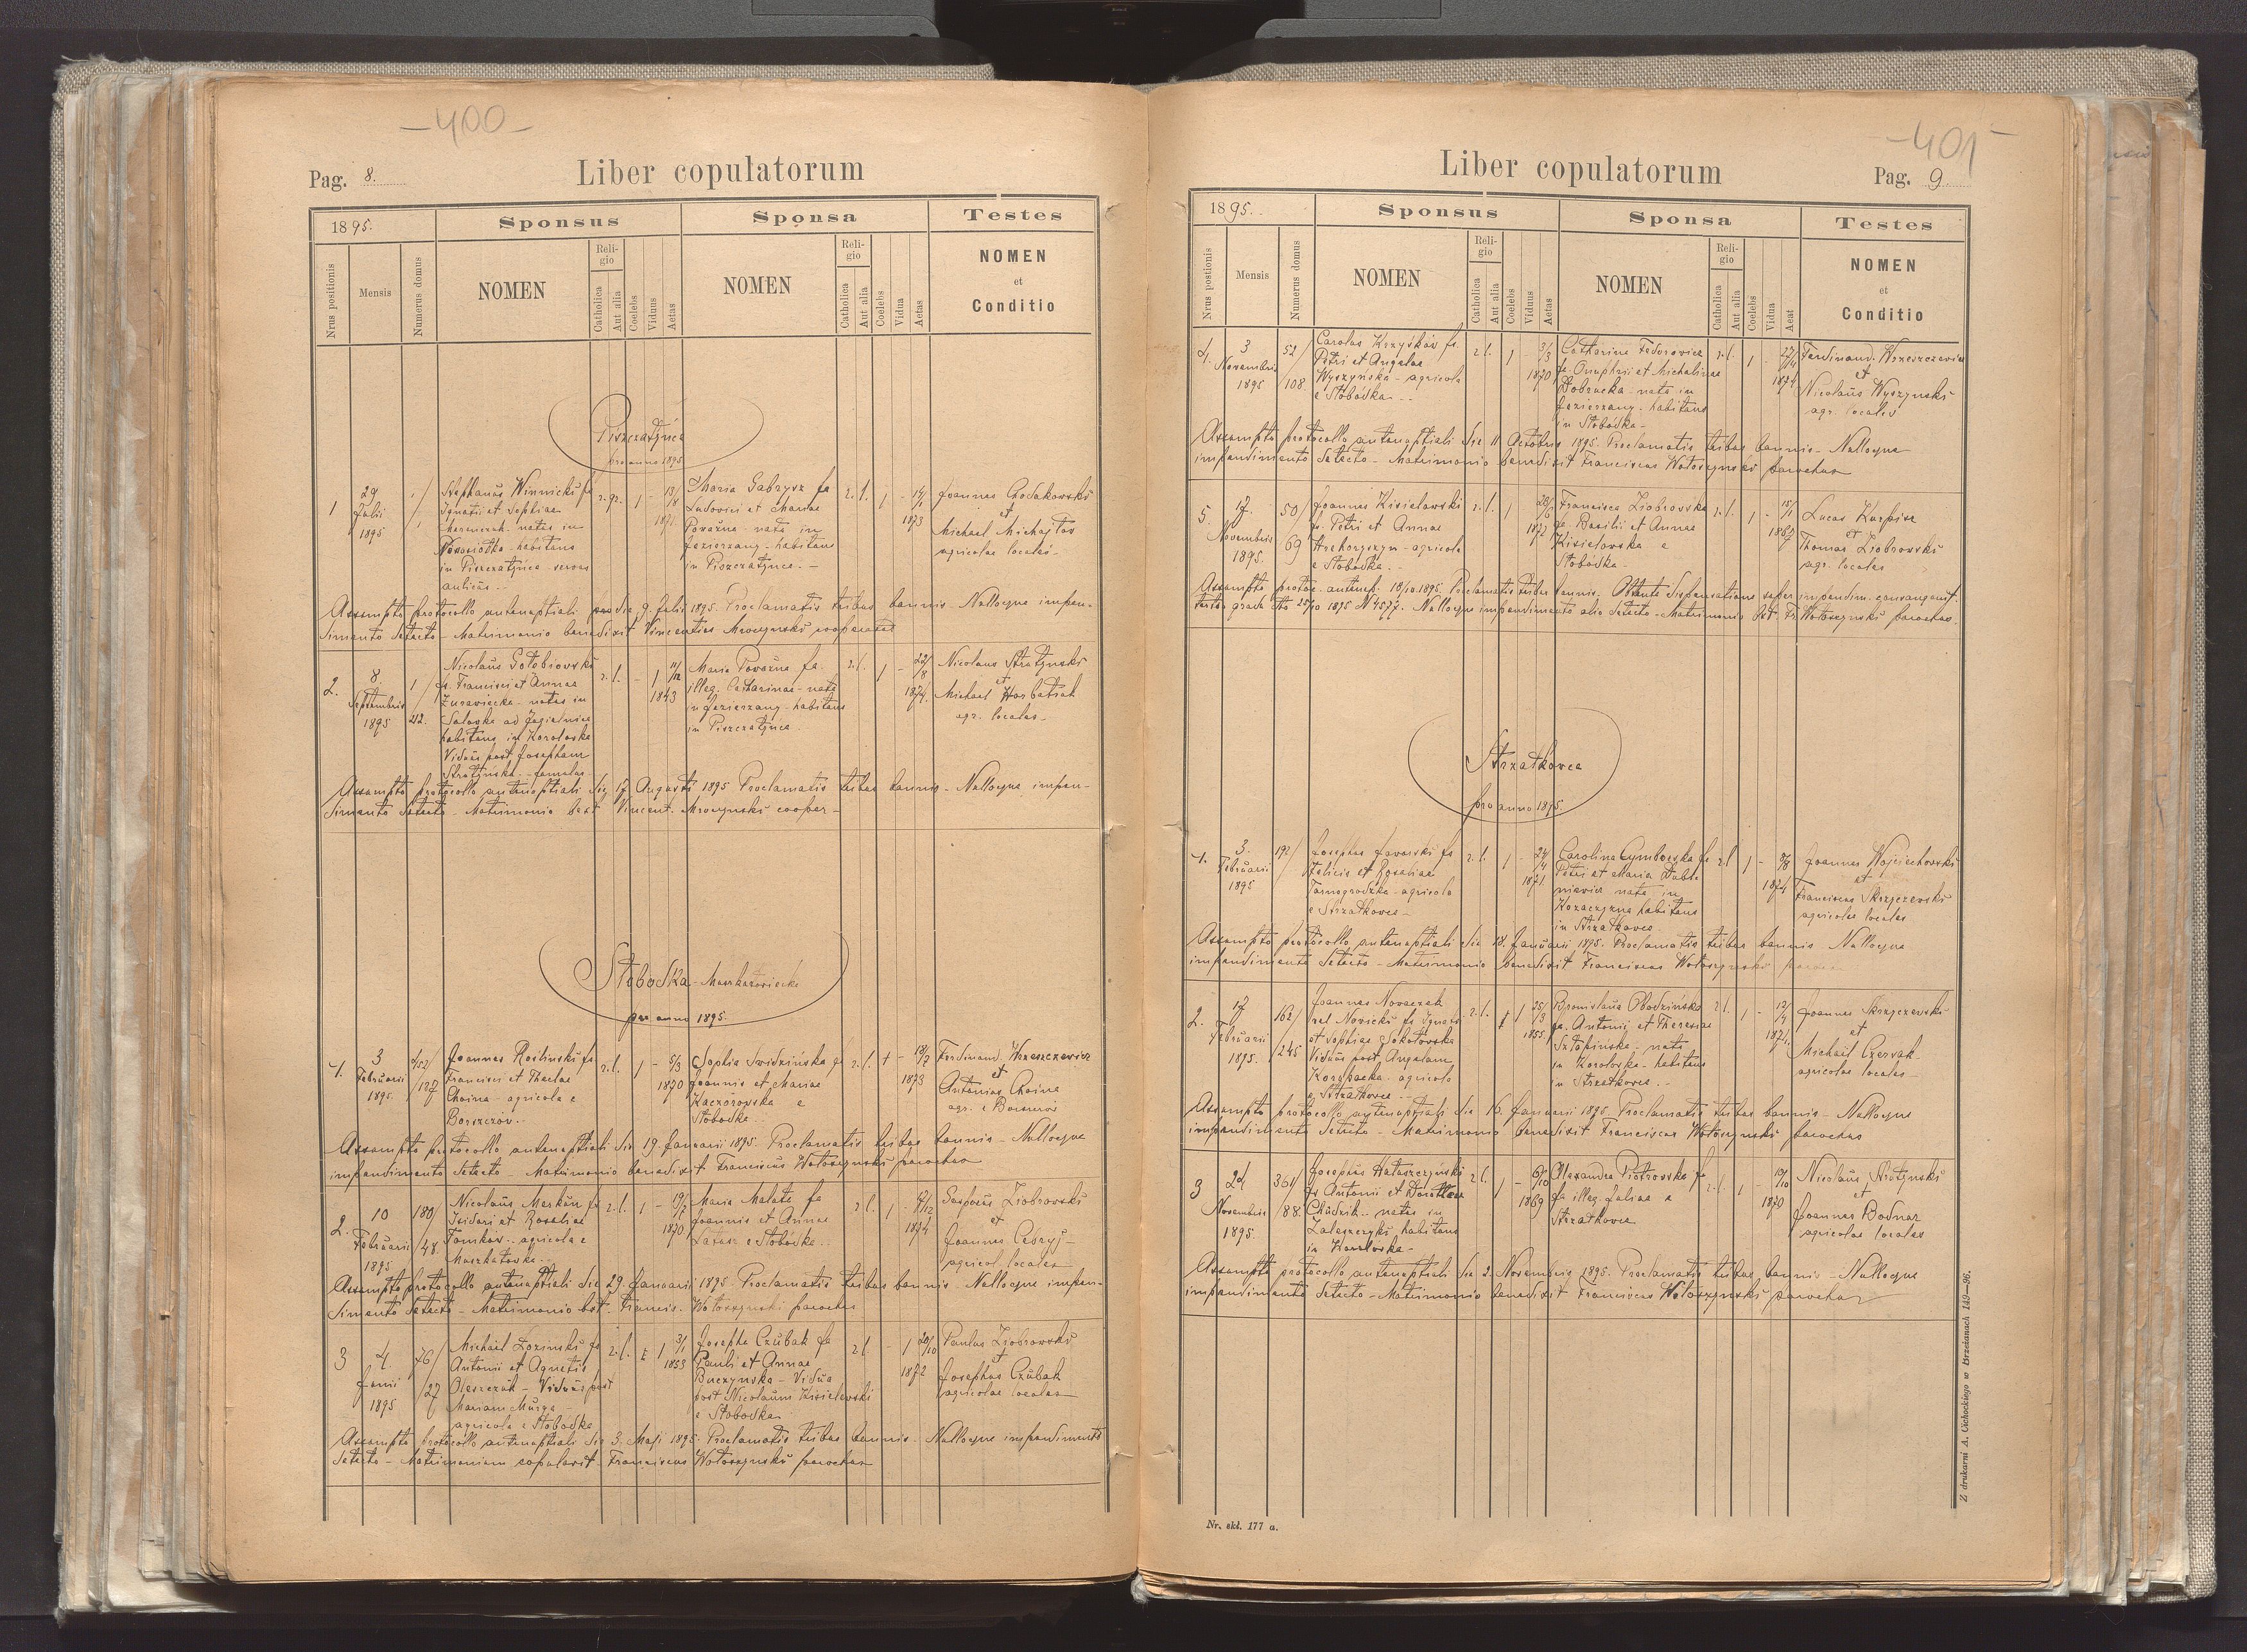 -400-
Pag. 8.
Liber copulatorum
1895.
Sponsus
Sponsa
Testes
Nrus positionis
Mensis
Numerus domus
NOMEN
Religio
Catholica
Aut alia
Coelebs
Viduus
Aetas
NOMEN
Religio
Catholica
Aut alia
Coelebs
Vidua
Aetas
NOMEN
et
Conditio
Piszczatyńce
pro anno 1895
1
29
Julii
1895
Stephanus Winnicki fs
Ignatii et Sophiae
natus in
habitans
in Piszczatyńce servus
aulicus.
r. l. 1 - 1871
Maria Gabrysz fa
Ludovici et Mariae
Poważna nata in
Jezierzany - habitans
in Piszczatyńce. -
r. l. 1 - 1873
Joannes Chodakowski
et
Michael Michajlow
agricolae locales -
Assumpto protocollo antenuptiali die 9. Julii 1895. Proclamatis tribus bannis - Nulloque impe-
dimento detecto - Matrimonio benedixit Vincentius Mroczynski cooperator
2.
8.
Septembris
1895
1/212.
Nicolaus Gołębiowski
fs. Francisci et Annae
Żurawiecka - natus in
ad Jagielnica
habitans in Korolówka
Viduus post Josepham
Stratyńska - famulus
r. l. - 1 11/12 1843
Maria Poważna fa.
illeg. Catharinae - nata
in Jezierzany - habitans
in Piszczatyńce
r. l. 1 - 22/8 1874.
Nicolaus Stratyński
et
Michael Horbatiuk
agr. locales -
Assumpto protocollo antenuptiali die 17. Augusti 1895 Proclamatis tribus bannis - Nulloque impe-
dimento detecto - Matrimonio bdxt Vincent. Mroczynski cooper -
Słobodka - Muszkatowiecka
pro anno 1895.
1.
3
Februarii
1895.
Joannes Rosliński fs
Francisci et Theclae
Choina - agricola e
Borszczów. -
r. l. 1 - 5/3 1870
Sophia Swidzińska fa
Joannis et Mariae
Kaczorowska e
Słobodka -
r. l. 1 - 18/2 1873
Ferdinand. Wrzeszczewicz
et
Antonius Choina
agr. e Borszczów
Assumpto protocollo antenuptiali die 19. Januarii 1895. Proclamatis tribus bannis - Nulloque
impedimento detecto - Matrimonio benedixit Franciscus Wołoszyński parochus
2.
10
Februarii
1895
180/48.
Nicolaus Merkun fs
Isidori et Rosaliae
Tomkow - agricola e
Muszkatówka -
r. l. 1 - 19/2 1870
Maria Malata fa
Joannis et Annae
e Słobódka -
r. l. 1 - 1874
Ziobrowski
et
Joannes
agricol. locales
Assumpto protocollo antenuptiali die 29. Januarii 1895. Proclamatis tribus bannis - Nulloque impe-
dimento detecto - Matrimonio bdt. Francis. Wołoszynski parochus
3
4.
Junii
1895
76/27
Michael Łoziński fs
Antonii et Agnetis
Oleszczuk - Viduus post
Mariam Murga -
agricola e Słobódka
r. l. 1 3/1 1853
Josepha Czubak fa
Pauli et Annae
Buczynska - Vidua
post Nicolaum Kisielewski
e Słobodka
r. l. - 1 20/10 1872
Paulus Ziobrowski
et
Josephus Czubak
agricolae locales
Assumpto protocollo antenuptiali die 3. Maji 1895. Proclamatis tribus bannis - Nulloque impedimento
detecto - Matrimonium copulavit Franciscus Wołoszynski parochus
-401-
Liber copulatorum
Pag. 9
1895.
Sponsus
Sponsa
Testes
Nrus postionis
Mensis
Numerus domus
NOMEN
Religio
Catholica
Aut alia
Coelebs
Viduus
Aetas
NOMEN
Religio
Catholica
Aut alia
Coelebs
Vidua
Aeat
NOMEN
et
Conditio
4.
3
Novembris
1895
52/108.
Carolus Krzyśków fs.
Petri et Angelae
Wyszyńska - agricola
e Słobódka -
r. l. 1 - 3/3 1870
Catharina Fedorowicz
fa. Onuphrii et Michalinae
Dobrucka - nata in
Jezierzany - habitans
in Słobódka -
r. l. 1 - 1874
Ferdinand. Wrzeszczewicz
et
Nicolaus Wyszynski
agr. locales
Assumpto protocollo antenuptiali die 11 Octobris 1895. Proclamatis tribus bannis - Nulloque
impedimento detecto - Matrimonio benedixit Franciscus Wołoszynski parochus
5.
17.
Novembris
1895.
50/69
Joannes Kisielewski
fs. Petri et Annae
Hrehoryszyn - agricola
e Słobódka. -
r. l. 1
Francisca Ziobrowska
fa. Basilii et Annae
Kisielewska e
Słobódka -
r. l. 1 - 15/1
Lucas Karpisz
et
Thomas Ziobrowski
agr. locales
Assumpto protoc. antenupt. 18/10 1895. Proclamatis tribus bannis. Obtenta dispensatione super impedim. consanguinit.
tertii gradu dto 25/10 1895 N 4577. Nulloque impedimento alio detecto - Matrimonio bdt. Fr. Wołoszynski parochus.
Strzałkowce
pro anno 1895.
1.
3.
Februarii
1895
192/
Josephus Jaworski fs
Felicis et Rosaliae
Tarnogrodzka - agricola
e Strzałkowce -
r. l. 1 - 24/4 1871.
Carolina Cymborska fa
Petri et Maria Dubi-
niewicz nata in
Kozaczyzna habitans
in Strzałkowce
r. l. 1 - 8/8 1874
Joannes Wojciechowski
et
Franciscus Skrzyczewski
agricolae locales
Assumpto protocollo antenuptiali die 18. Januarii 1895. Proclamatis tribus bannis Nulloque
impedimento detecto - Matrimonio benedixit Franciscus Wołoszynski parochus
2.
17
Februarii
1895.
162/245
Joannes Nowaczek
vel Nowicki fs Ignatii
et Sophiae Sokołowska
Viduus post Angelam
agricola
e Strzałkowce -
r. l. 1 25/3 1855.
Bronislaua Obodzińska
fa. Antonii et Theresiae
nata
in Korolówka - habitans
in Strzałkowce. -
r. l. 1 - 1871.
Joannes Skrzyczewski
et
Michael Czerwak
agricolae locales -
Assumpto protocollo antenuptiali die 16. Januarii 1895. Proclamatis tribus bannis - Nulloque
impedimento detecto - Matrimonio benedixit Franciscus Wołoszynski parochus
3
24
Novembris
1895.
361/88.
Josephus Hałaszczyński
fs Antonii et Dorothea
Chudzik - natus in
Zaleszczyki habitans
in Korolówka -
r. l. 1 - 6/10 1869
Alexandra Piotrowska fa
fa illeg. Juliae e
Strzałkowce
r. l. 1 - 1870
Nicolaus Stratyński
et
Joannes Bodnar
agricolae locales
Assumpto protocollo antenuptiali die 2. Novembris 1895. Proclamatis tribus bannis - Nulloque
impedimento detecto - Matrimonio benedixit Franciscus Wołoszynski parochus
Nr. skł. 177 a.
Z drukarni A. Cichockiego w Brzeżanach 149—96.